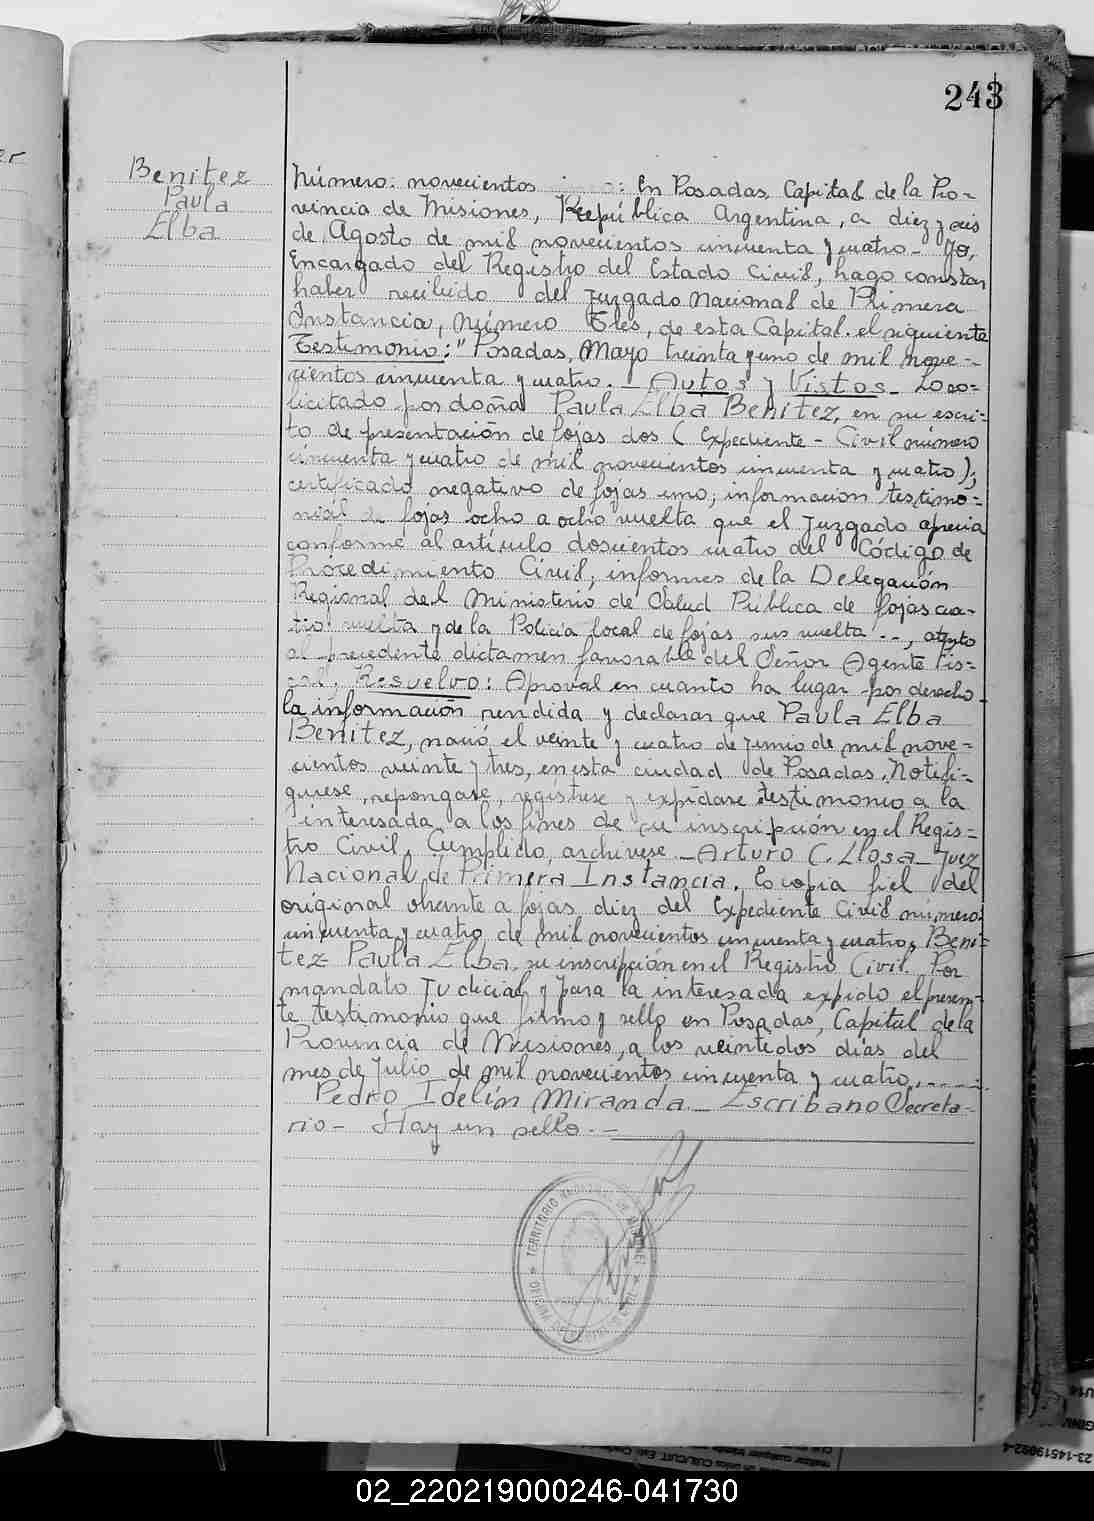 243
Benitez
Paula
Elba
Número: novecientos : En Posadas, Capital de la Pro-
vincia de Misiones, República Argentina, a diez y seis
de Agosto de mil novecientos cincuenta y cuatro - Yo,
Encargado del Registro del Estado Civil, hago constar
haber recibido del Juzgado Nacional de Primera
Instancia, Número Tres, de esta Capital. el siguiente
Testimonio: "Posadas, Mayo treinta y uno de mil nove-
cientos cincuenta y cuatro. - Autos y Vistos - Lo so=
licitado por doña Paula Elba Benitez, en su escri-
to de presentación de fojas dos ( Expediente - Civil número
cincuenta y cuatro de mil novecientos cincuenta y cuatro);
certificado negativo de fojas uno; informacion testimo=
nial de fojas ocho a ocho vuelta que el Juzgado aprecia
conforme al artículo doscientos cuatro del Código de
Procedimiento Civil, informes de la Delegación
Regional del Ministerio de Salud Pública de fojas cua-
tro vuelta y de la Policia local de fojas seis vuelta --, atento
al precedente dictamen favorable del Señor Agente Fis=
cal, Resuelvo: Aproval en cuanto ha lugar por derecho
la información rendida y declarar que Paula Elba
Benitez, nació el veinte y cuatro de Junio de mil nove=
cientos veinte y tres, en esta ciudad de Posadas. Notifi=
quiese, repongase, registrese y expídase testimonio a la
interesada a los fines de su inscripción en el Regis=
tro Civil. Cumplido, archivese - Arturo C. Llosa - Juez
Nacional de Primera Instancia. Es copia fiel del
original obrante a fojas diez del Expediente Civil número
cincuenta y cuatro de mil novecientos cincuenta y cuatro, Beni=
tez Paula Elba su inscripción en el Registro Civil. Por
mandato Judicial y para la interesada expido el presen-
te testimonio que firmo y sello en Posadas, Capital de la
Provincia de Misiones, a los veintedos días del
mes de Julio de mil novecientos cincuenta y cuatro.------
Pedro Idelín Miranda - Escribano Secreta-
rio - Hay un sello.--
TERRITORIO
02_220219000246-041730